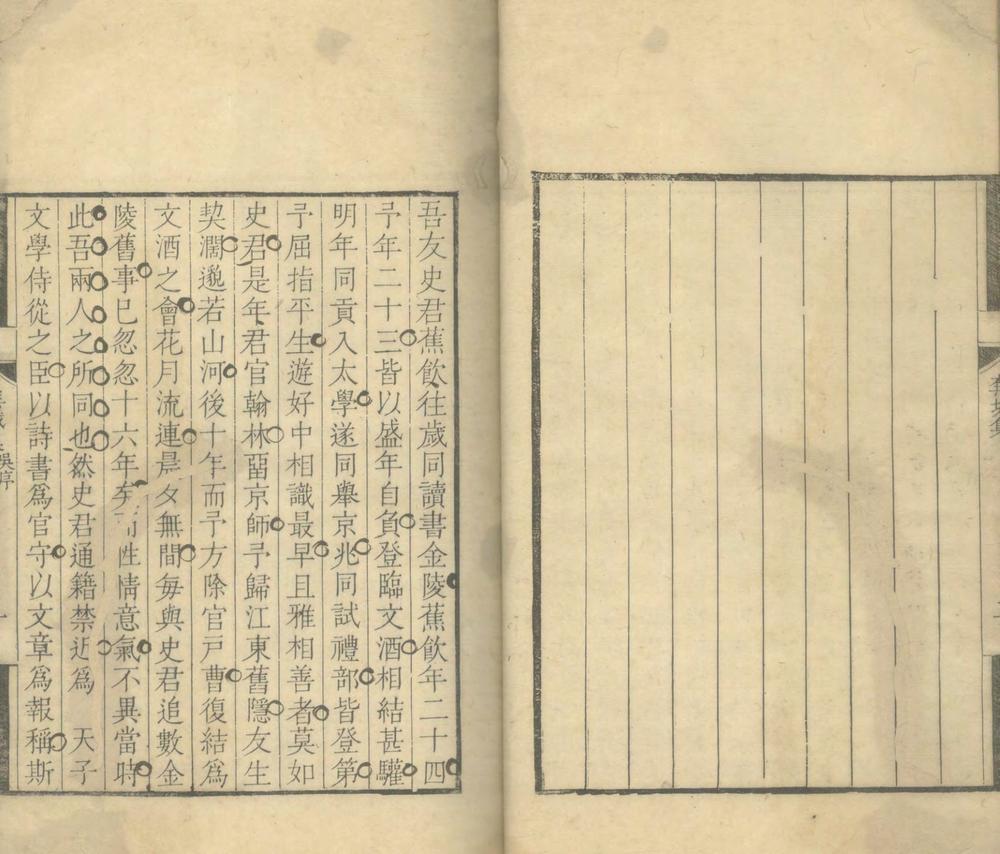 吾友史君蕉飲往歲同讀書金陵蕉飲年二十四
予年二十三皆以盛年自負登臨文酒相結甚驩
明年同貢入太學遂同舉京兆同試禮部皆登第
予屈指平生遊好中相識最早且雅相善者莫如
史君是年君官翰林畱京師予歸江東舊隱友生
契濶邈若山河後十年而予方除官戸曹復結爲
文酒之會花月流連晨夕無間每與史君追數金
陵舊事已忽忽十六年矣性情意氣不異當時
此吾兩人之所同也然史君通籍禁近爲 天子
文學侍從之臣以詩書爲官守以文章爲報稱斯